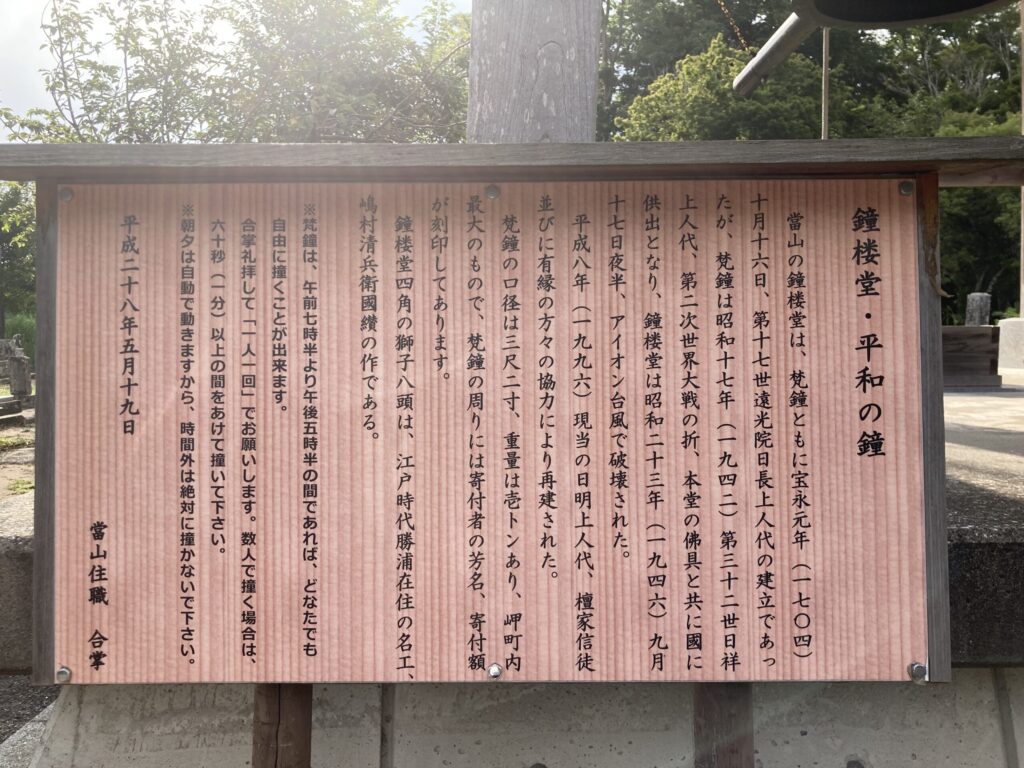 鐘楼堂・平和の鐘
當山の鐘楼堂は、梵鐘ともに宝永元年（一七〇四）
十月十六日、第十七世遠光院日長上人代の建立であっ
たが、梵鐘は昭和十七年（一九四二）第三十二世日祥
上人代、第二次世界大戦の折、本堂の佛具と共に國に
供出となり、鐘楼堂は昭和二十三年（一九四六）九月
十七日夜半、アイオン台風で破壊された。
平成八年（一九九六）現当の日明上人代、檀家信徒
並びに有縁の方々の協力により再建された。
梵鐘の口径は三尺二寸、重量は壱トンあり、岬町内
最大のもので、梵鐘の周りには寄付者の芳名、寄付額
が刻印してあります。
鐘楼堂四角の獅子八頭は、江戸時代勝浦在住の名工、
嶋村清兵衛國纉の作である。
※梵鐘は、午前七時半より午後五時半の間であれば、どなたでも
自由に撞くことが出来ます。
合掌礼拝して「一人一回」でお願いします。数人で撞く場合は、
六十秒（一分）以上の間をあけて撞いて下さい。
※朝夕は自動で動きますから、時間外は絶対に撞かないで下さい。
平成二十八年五月十九日
當山住職　合掌